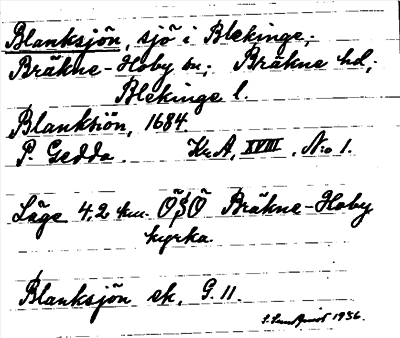 Blanksjön, sjö i Blekinge,
Bräkne-Hoby sn; Bräkne hd;
Blekinge l.
Blanksiön, 1684.
P. Gedda. Kr. A, XVIII, No 1.
Läge 4,2 km. ÖSÖ Bräkne-Hoby
kyrka.
Blanksjön ek. G. 11.
1936.